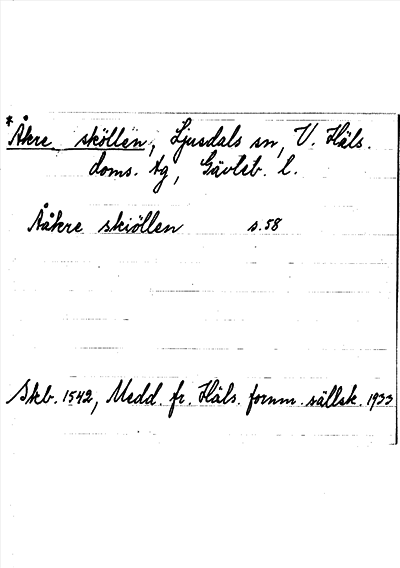 *Åkre sköllen, Ljusdals sn, V. Häls.
doms. tg, Gävleb. l.
Ååkre skiöllen s. 58
Skb. 1542, Medd. fr. Häls. fornm. sällsk. 1933